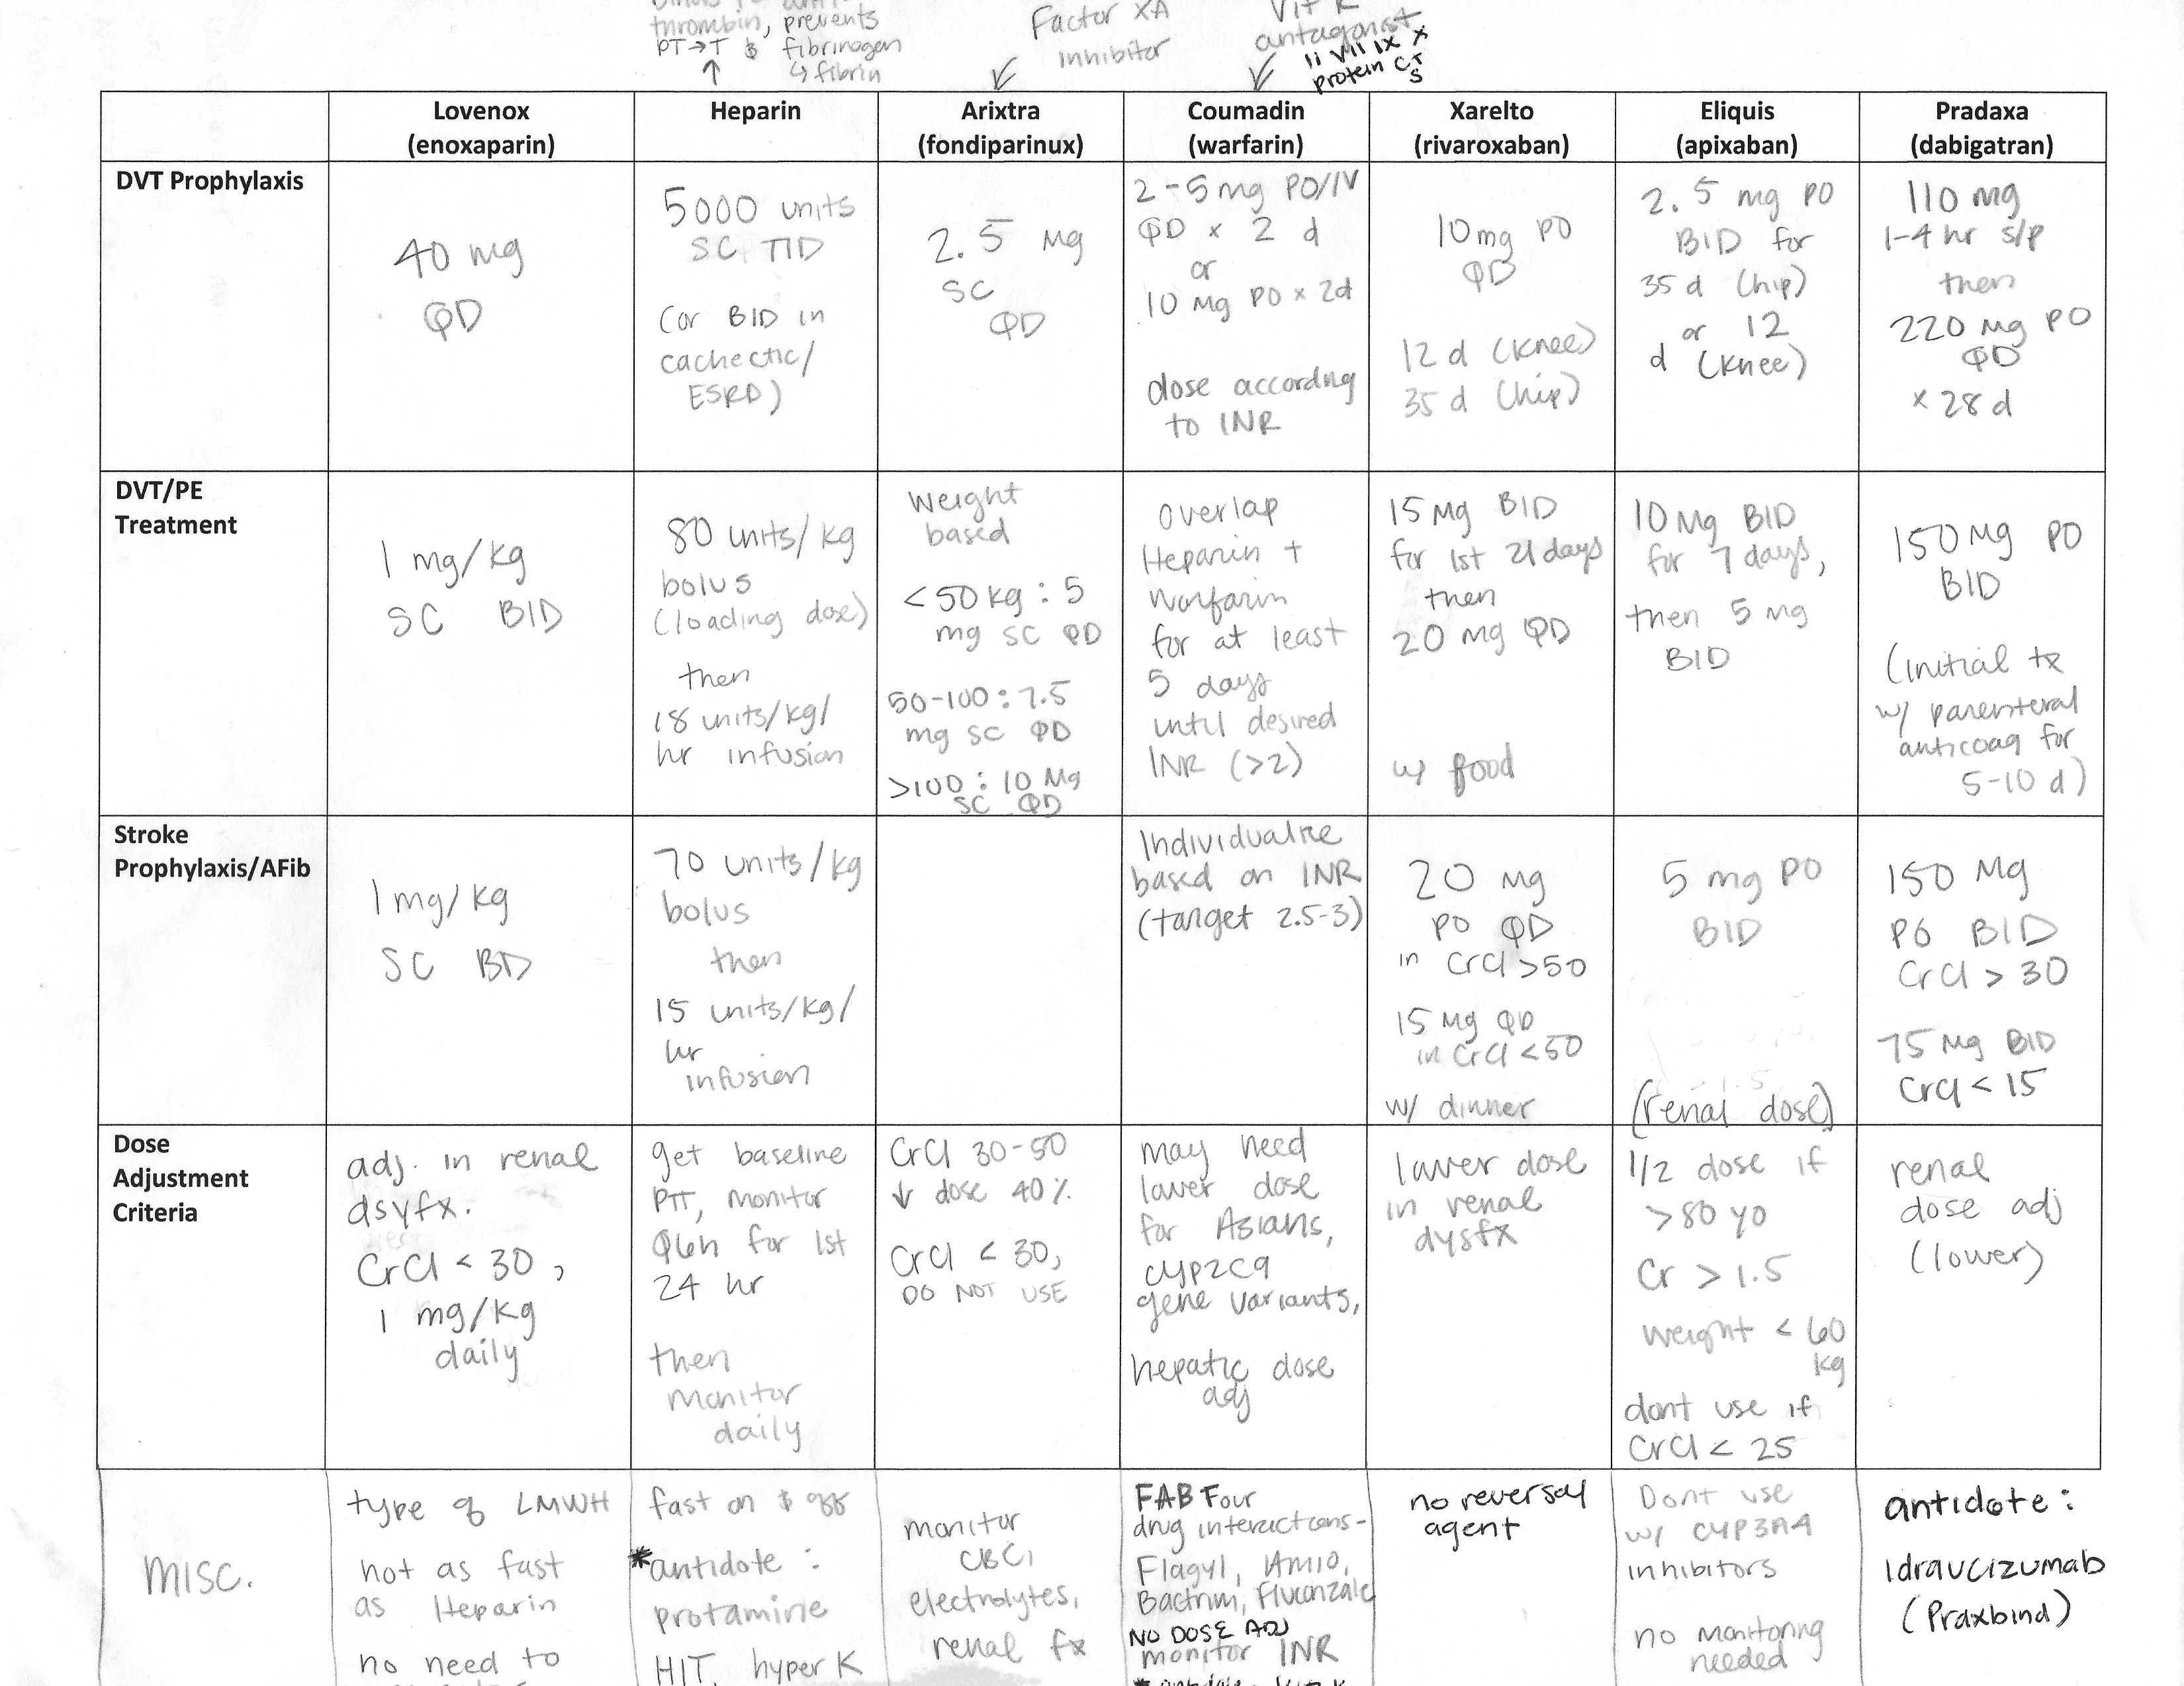 thrombin, prevents
PT→T & fibrinogen
↳ fibrin
↑
Factor XA
inhibitor
Vit K
antagonist
II VII IX X
protein C+
S
Lovenox
(enoxaparin)
Heparin
Arixtra
(fondiparinux)
Coumadin
(warfarin)
Xarelto
(rivaroxaban)
Eliquis
(apixaban)
Pradaxa
(dabigatran)
DVT Prophylaxis
40 mg
QD
5000 units
SC TID
(or BID in
cachectic/
ESRD)
2.5 mg
SC
QD
2-5 mg PO/IV
QD x 2 d
or
10 mg PO x 2d
dose according
to INR
10mg PO
QD
12 d (knee)
35 d (hip)
2.5 mg PO
BID for
35 d (hip)
or 12
d (knee)
110 mg
1-4 hr s/p
then
220 mg PO
QD
x 28 d
DVT/PE
Treatment
1 mg/kg
SC BID
80 units/kg
bolus
(loading dose)
then
18 units/kg/
hr infusion
Weight
based
<50 kg : 5
mg SC QD
50-100 : 7.5
mg SC QD
>100 : 10 mg
SC QD
Overlap
Heparin +
warfarin
for at least
5 days
until desired
INR (>2)
15 mg BID
for 1st 21 days
then
20 mg QD
w/ food
10 mg BID
for 7 days,
then 5 mg
BID
150 mg PO
BID
(initial tx
w/ parenteral
anticoag for
5-10 d)
Stroke
Prophylaxis/AFib
1 mg/kg
SC BD
70 units/kg
bolus
then
15 units/kg/
hr
infusion
Individualize
based on INR
(target 2.5-3)
20 mg
PO QD
in CrCl >50
15 mg QD
in CrCl <50
w/ dinner
5 mg PO
BID
(renal dose)
150 mg
PO BID
CrCl > 30
75 mg BID
CrCl < 15
Dose
Adjustment
Criteria
adj. in renal
dsyfx.
CrCl < 30,
1 mg/kg
daily
get baseline
PTT, monitor
Q6h for 1st
24 hr
then
monitor
daily
CrCl 30-50
↓ dose 40%
CrCl < 30,
DO NOT USE
may need
lower dose
for Asians,
CYP2C9
gene variants,
hepatic dose
adj
lower dose
in renal
dysfx
1/2 dose if
>80 yo
Cr > 1.5
weight < 60
kg
dont use if
CrCl < 25
renal
dose adj
(lower)
MISC.
type of LMWH
not as fast
as Heparin
no need to
fast on & off
*antidote :
protamine
HIT, hyper K
monitor
CBC,
electrolytes,
renal fx
FAB Four
drug interactions-
Flagyl, AMIO,
Bactrim, Fluconzale
NO DOSE ADJ
monitor INR
no reversal
agent
Dont use
w/ CYP3A4
inhibitors
no monitoring
needed
antidote :
Idraucizumab
(Praxbind)